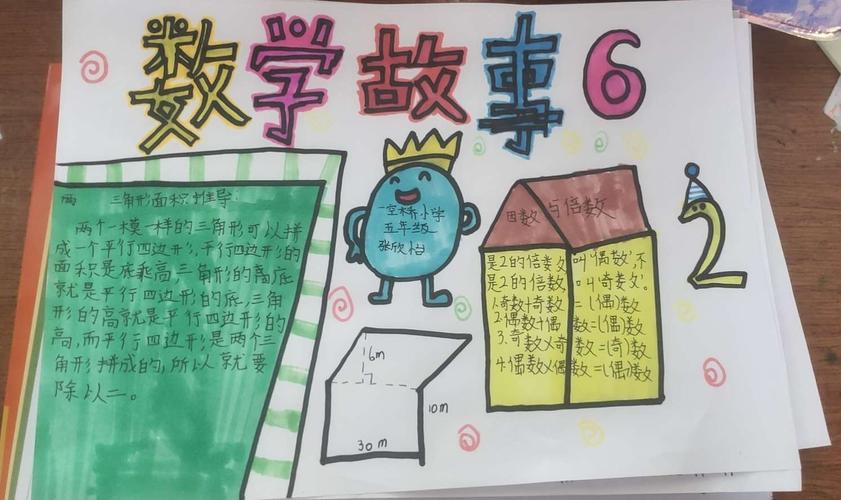 数学故事6
两 三角形面积推导:
两个一模一样的三角形可以拼
成一个平行四边形,平行四边形的
面积是底乘高,三角形的高底
就是平行四边形的底,三角
形的高就是平行四边形的
高,而平行四边形是两个三
角形拼成的,所以就要
除以二。
一空桥小学
五年级
张欣怡
6m
10m
30m
因数与倍数
是2的倍数叫'偶数',不
是2的倍数叫'奇数'。
1.奇数+奇数=(偶)数
2.偶数+偶数=(偶)数
3.奇数×奇数=(奇)数
4.偶数×偶数=(偶)数
2